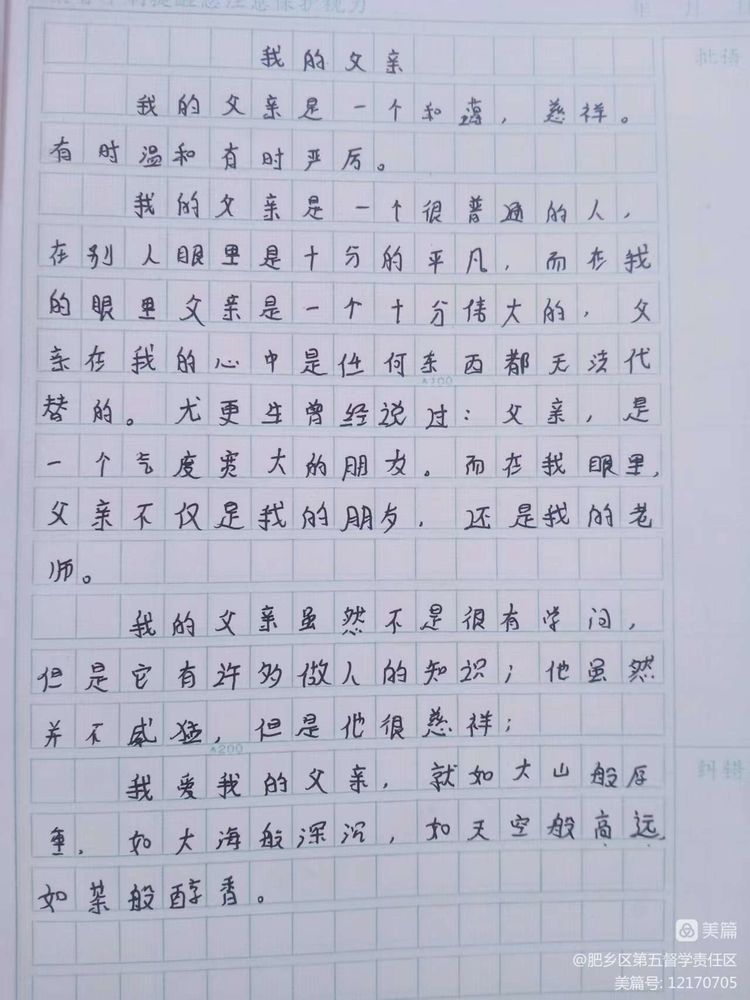 我的父亲
我的父亲是一个和蔼，慈祥。
有时温和有时严厉。
我的父亲是一个很普通的人，
在别人眼里是十分的平凡，而在我
的眼里父亲是一个十分伟大的，父
亲在我的心中是任何东西都无法代
*100
替的。尤更生曾经说过：父亲，是
一个气度宽大的朋友。而在我眼里，
父亲不仅是我的朋友，还是我的老
师。
我的父亲虽然不是很有学问，
但是它有许多做人的知识；他虽然
并不威猛，但是他很慈祥；
*200
我爱我的父亲，就如大山般厚
重，如大海般深沉，如天空般高远，
如菜般醇香。
批语
纠错
美篇
@肥乡区第五督学责任区
美篇号: 12170705